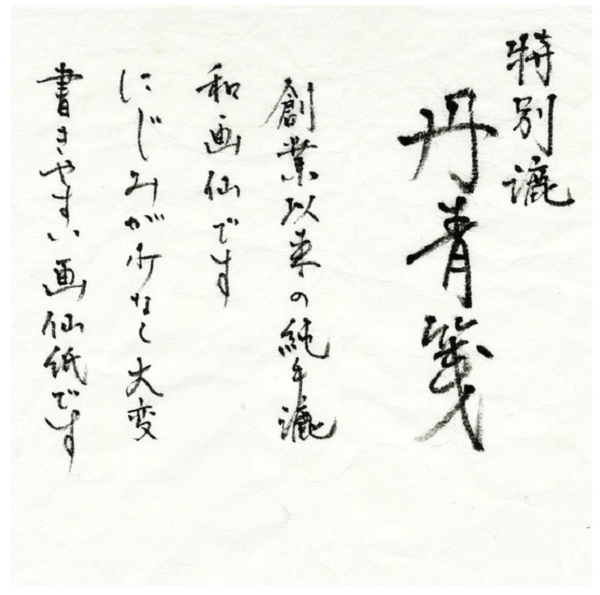 特別漉
丹青箋
創業以来の純手漉
和画仙です
にじみが少なく大変
書きやすい画仙紙です